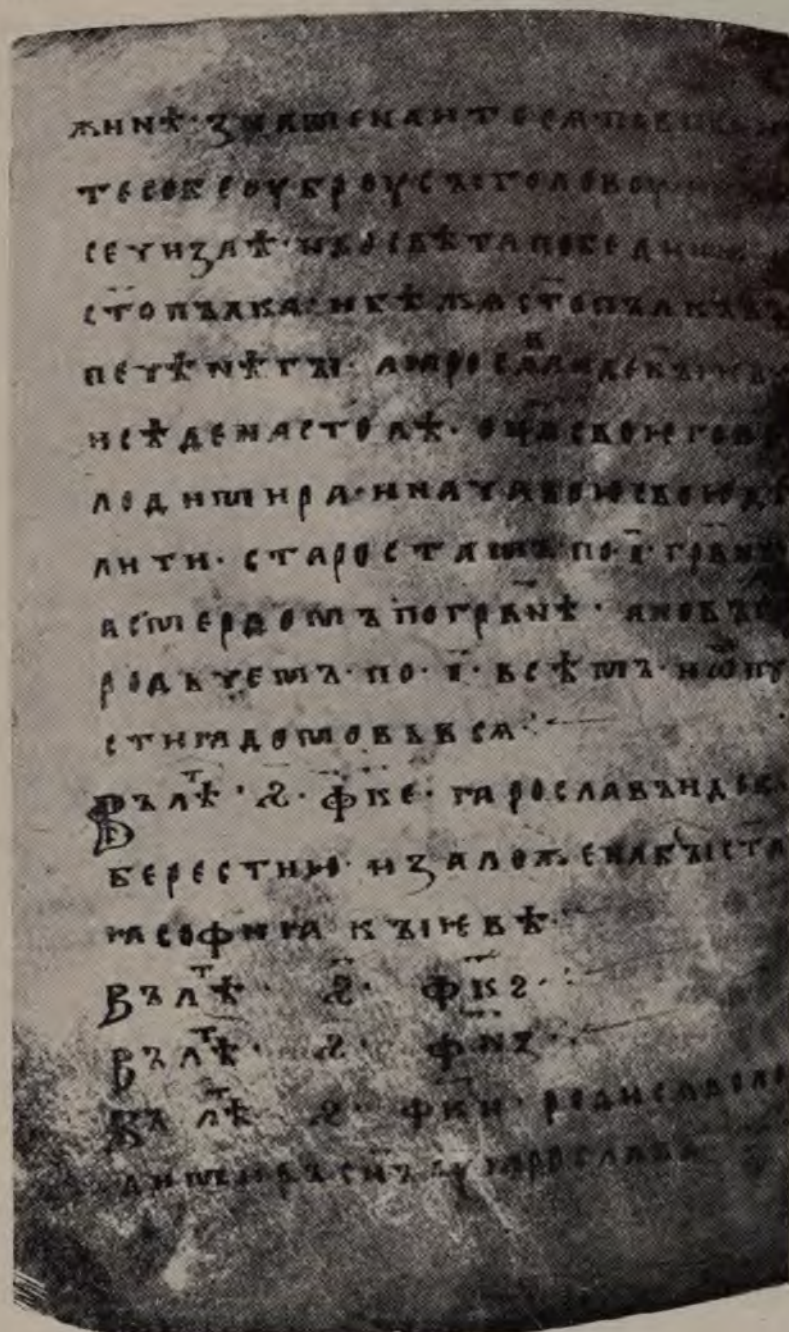 жинѣ· знаменаитеся повива
тесобеоуброусъı головоу·
сѣчизлѣ· идосвѣтапобѣдиша
с҃топълка· ибѣжас҃топълкъвъ
печѣнѣгъı· аꙗросла͏ⷡ҇идекъıѥв
исѣденастолѣ· оц҃асвоѥгово
лодимира· иначавоꙗсвоꙗдѣ
лити· старостамъпо·і҃·грвн
асмердомъпогрвн҃ѣ· ановъго
родьчемъ·по·і҃·всѣмъ·иѿпу
стиꙗдомовьвся
Вълⷮѣ·ѕ҃·фк҃е· ꙗрославъидек
берестию·изаложенабъıс҃та
ꙗсофиꙗ къıѥвѣ·
Вълⷮѣ· ѕ҃· фк҃ѕ·
Вълⷮѣ· ѕ҃· фк҃з·
Въ лⷮѣ· ѕ҃· фк҃и· родисяволо
димеиръсн҃ъ у ꙗрослава